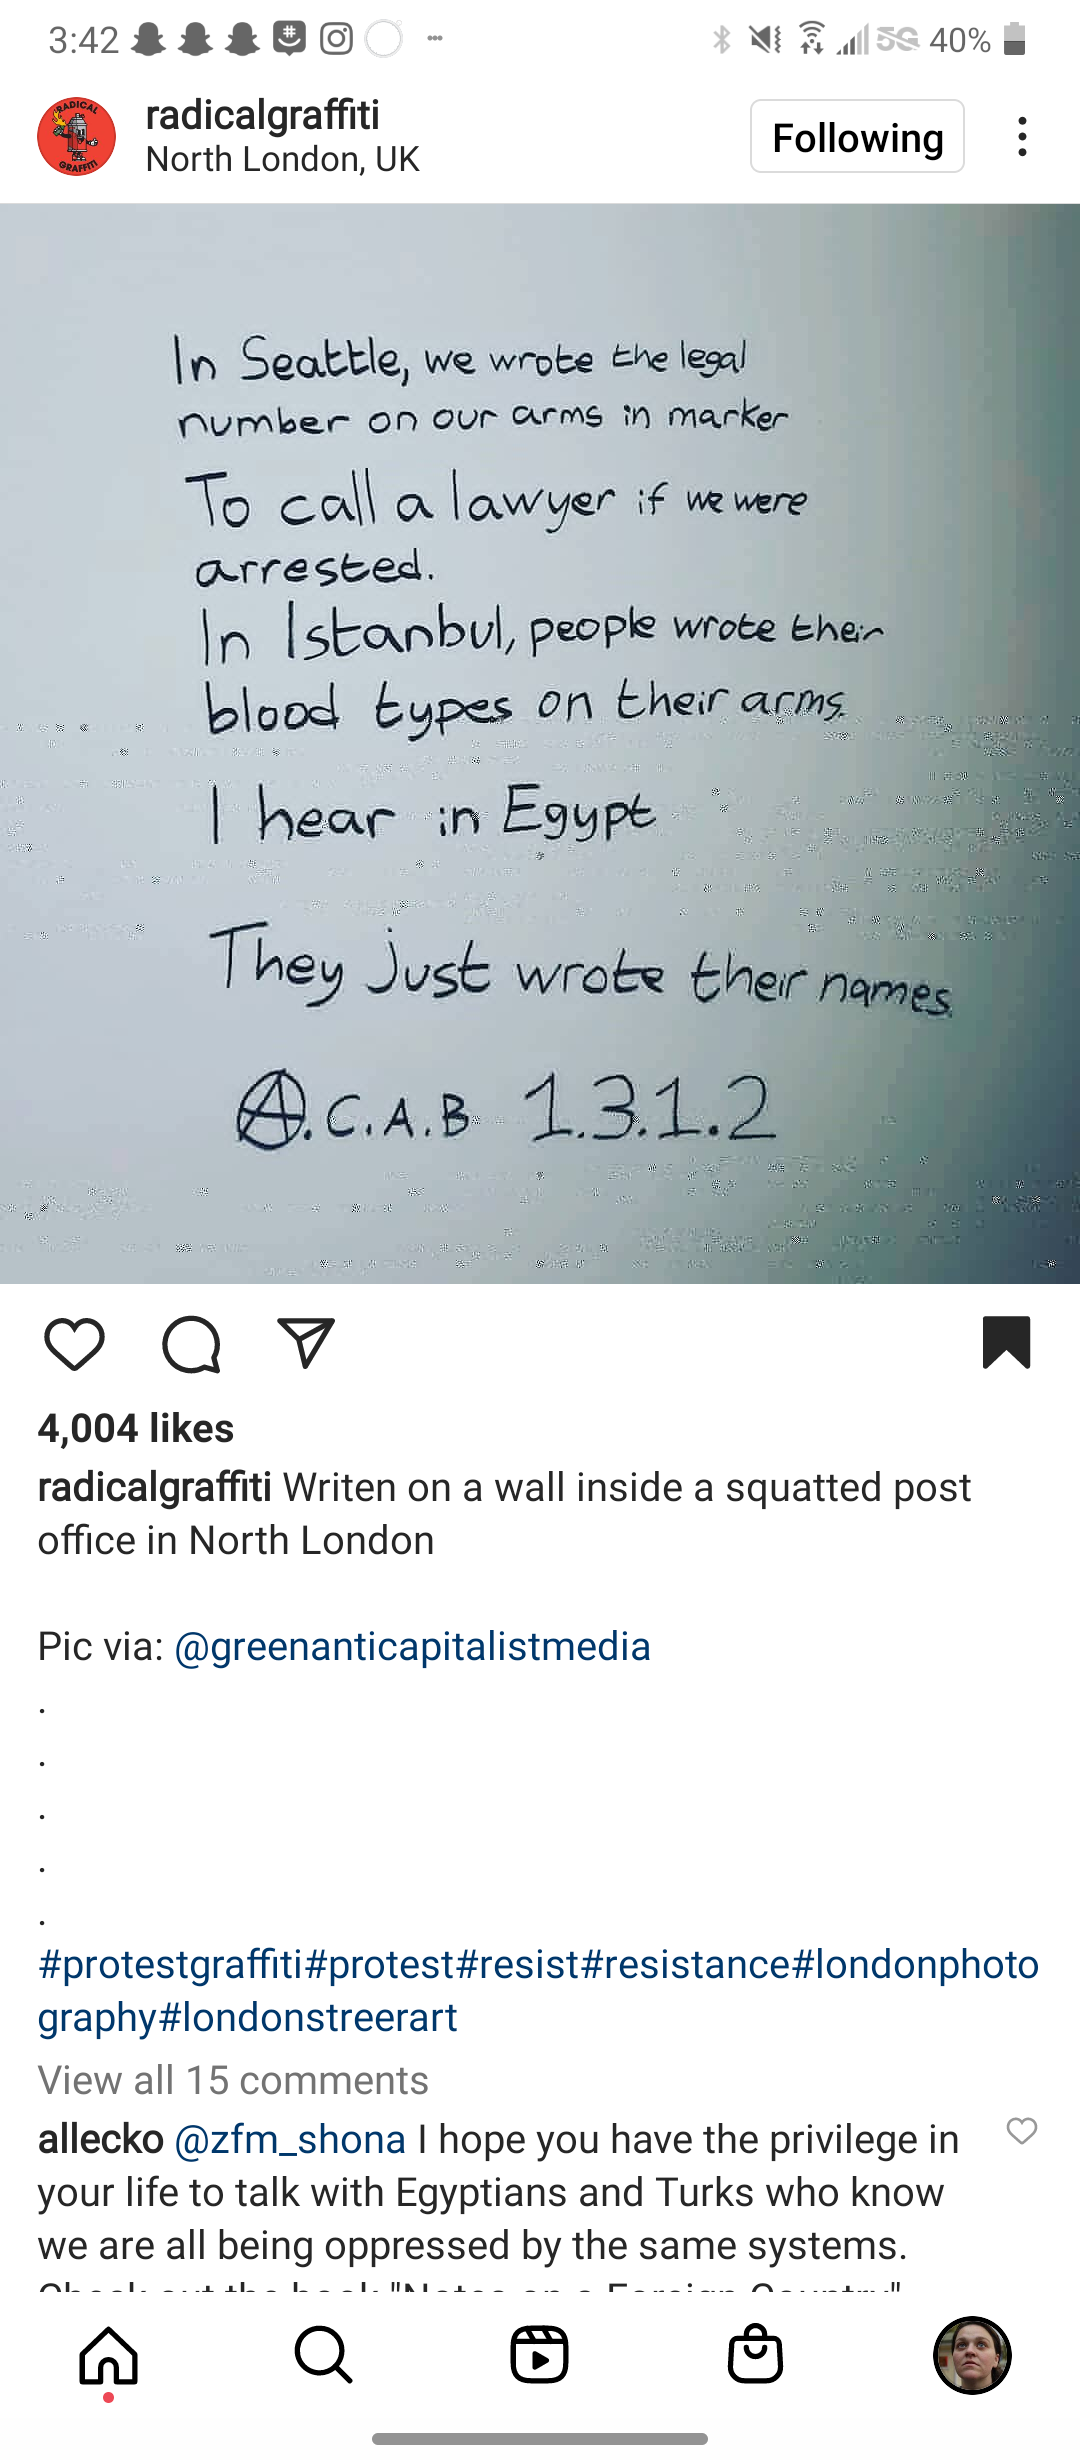 3:42
5G 40%
RADICAL
GRAFFITI
radicalgraffiti
North London, UK
Following
In Seattle, we wrote the legal
number on our arms in marker
To call a lawyer if we were
arrested.
In Istanbul, people wrote their
blood types on their arms.
I hear in Egypt
They just wrote their names.
A.C.A.B 1.3.1.2
4,004 likes
radicalgraffiti Writen on a wall inside a squatted post
office in North London
Pic via: @greenanticapitalistmedia
.
.
.
.
.
#protestgraffiti#protest#resist#resistance#londonphoto
graphy#londonstreerart
View all 15 comments
allecko @zfm_shona I hope you have the privilege in
your life to talk with Egyptians and Turks who know
we are all being oppressed by the same systems.
Check out the book "Notes on a Foreign Country"